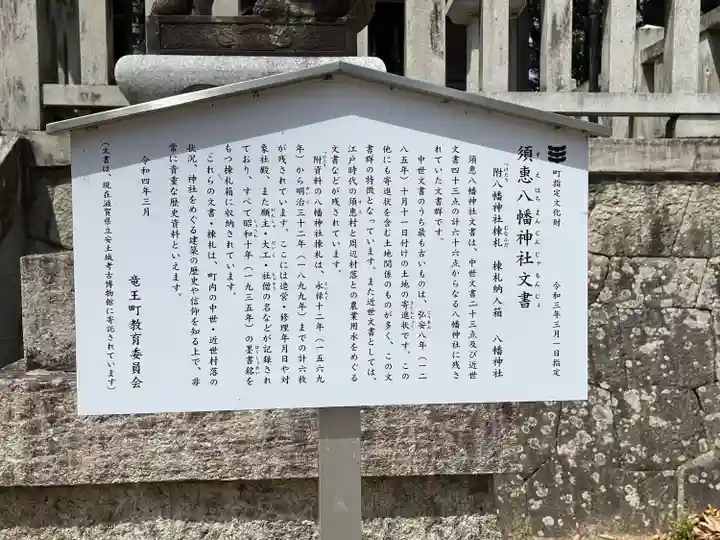 町指定文化財
令和三年三月一日指定
すえはちまんじんじゃもんじょ
須恵八幡神社文書
つけたり むなふだ
附八幡神社棟札 棟札納入箱 八幡神社
須恵八幡神社文書は、中世文書二十三点及び近世
文書四十三点の計六十六点からなる八幡神社に残さ
れていた文書群です。
中世文書のうち最も古いものは、弘安八年(一二
八五年)十月十一日付けの土地の寄進状です。この
他にも寄進状を含む土地関係のものが多く、この文
書群の特徴となっています。また近世文書としては、
江戸時代の須恵村と周辺村落との農業用水をめぐる
文書などが残されています。
附資料の八幡神社棟札は、永禄十二年(一五六九
年)から明治三十二年(一八九九年)までの計六枚
が残されています。ここには造営・修理年月日や対
象社殿、また願主・大工・社僧の名などが記録され
ており、すべて昭和十年(一九三五年)の墨書銘を
もつ棟札箱に収納されています。
これらの文書・棟札は、町内の中世・近世村落の
状況、神社をめぐる建築の歴史や信仰を知る上で、非
常に貴重な歴史資料といえます。
令和四年三月
竜王町教育委員会
(文書は、現在滋賀県立安土城考古博物館に寄託されています)